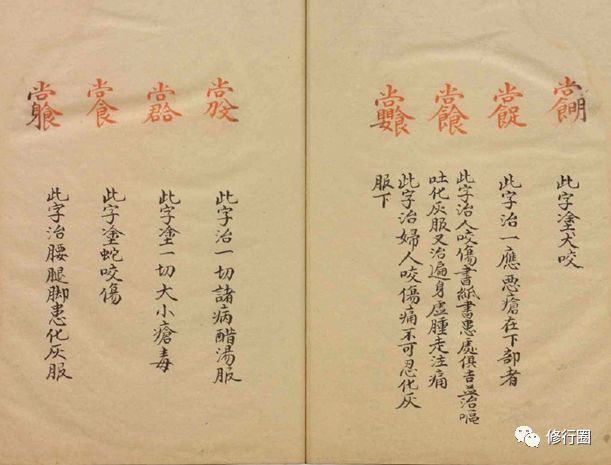 此字塗犬咬
此字治一應悪瘡在下部者
此字治人咬傷書紙書患處俱吉並治嘔
吐化灰服又治遍身虛腫走注痛
此字治婦人咬傷痛不可忍化灰
服下
此字治一切諸病醋湯服
此字塗一切大小瘡毒
此字塗蛇咬傷
此字治腰腿脚患化灰服
修行圈